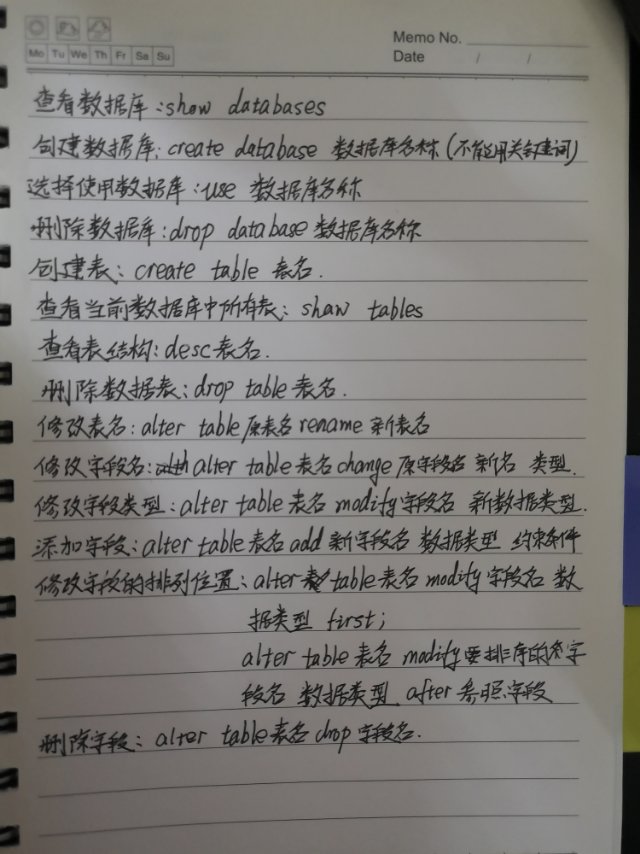 Memo No.
Mo Tu We Th Fr Sa Su
Date / /
查看数据库:show databases
创建数据库:create database 数据库名称(不能运用关键词)
选择使用数据库:use 数据库名称
删除数据库:drop database 数据库名称
创建表:create table 表名.
查看当前数据库中所有表:show tables
查看表结构:desc表名.
删除数据表:drop table 表名.
修改表名:alter table 原表名 rename 新表名
修改字段名:alter table 表名 change 原字段名 新名 类型.
修改字段类型:alter table 表名 modify 字段名 新数据类型.
添加字段:alter table 表名 add 新字段名 数据类型 约束条件
修改字段的排列位置:alter table 表名 modify 字段名 数
据类型 first;
alter table 表名 modify 要排序的字
段名 数据类型 after 参照字段
删除字段:alter table 表名 drop 字段名.